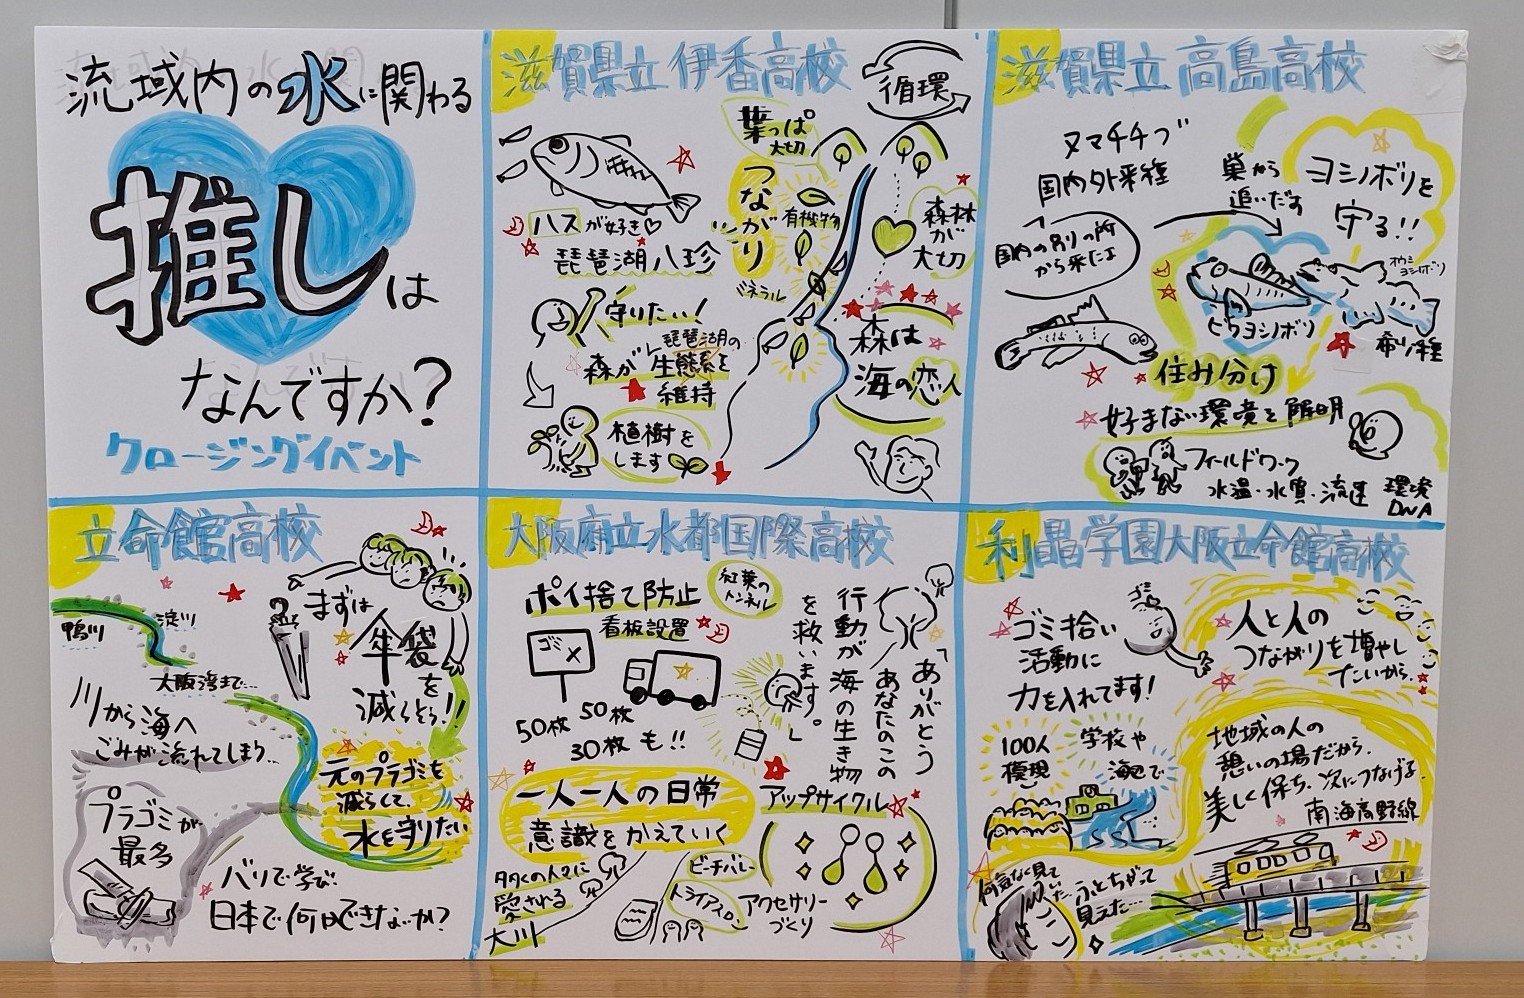 流域内の水に関わる
推しは
なんですか?
クロージングイベント
滋賀県立 伊香高校
循環
葉っぱ
大切
つながり
有機物
ミネラル
ハスが好き♡
琵琶湖八珍
守りたい!
森が
琵琶湖の
生態系を
維持
植樹を
します
森林
が
大切
森は
海の恋人
滋賀県立 高島高校
ヌマチチブ
国内外来種
国内の別の所
から来たよ
巣から
追いだす
ヨシノボリを
守る!!
オウミ
ヨシノボリ
ビワヨシノボリ
希少種
住み分け
好まない環境を解明
フィールドワーク
水温・水質・流速
環境
DNA
立命館高校
鴨川
淀川
大阪湾まで…
まずは
傘袋
を
減らそう!
川から海へ
ごみが流れてしまう…
プラゴミが
最多
元のプラゴミを
減らして、
水を守りたい
バリで学び
日本で何ができないか?
大阪府立水都国際高校
ポイ捨て防止
看板設置
紅葉の
トンネル
ゴミ×
50枚 50枚
30枚も!!
「ありがとう
あなたのこの
行動が海の生き物
を救います。」
一人一人の日常
意識をかえていく
アップサイクル
多くの人々に
愛される
大川
ビーチバレー
トライアスロン
アクセサリー
づくり
利晶学園大阪立命館高校
ゴミ拾い
活動に
力を入れてます!
人と人の
つながりを増やし
たいから。
100人
規模
学校や
海辺で
地域の人の
憩いの場だから、
美しく保ち、次につなげる
南海高野線
何気なく見て
いた…
ふとちがって
見えた…